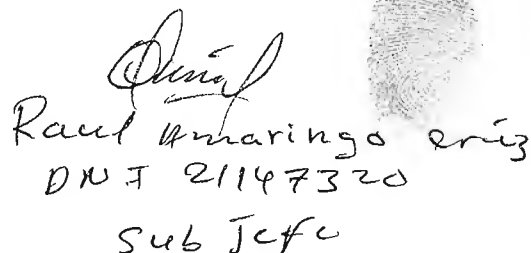 Raul Amaringo Cruz
DNI 21147320
Sub Jefe